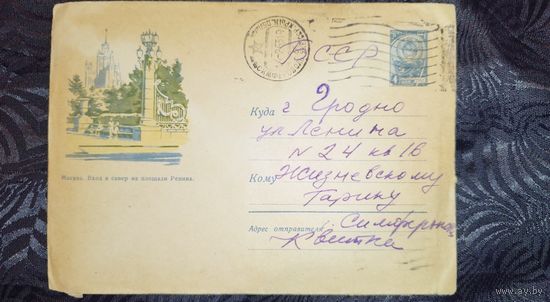 БССР
Куда г Гродно
ул Ленина
N 24 кв 1б
Кому Жизневскому
Гарику
Адрес отправителя г. Симферополь
Квитка
Москва. Вход в сквер на площади Репина.
4
www.ay.by